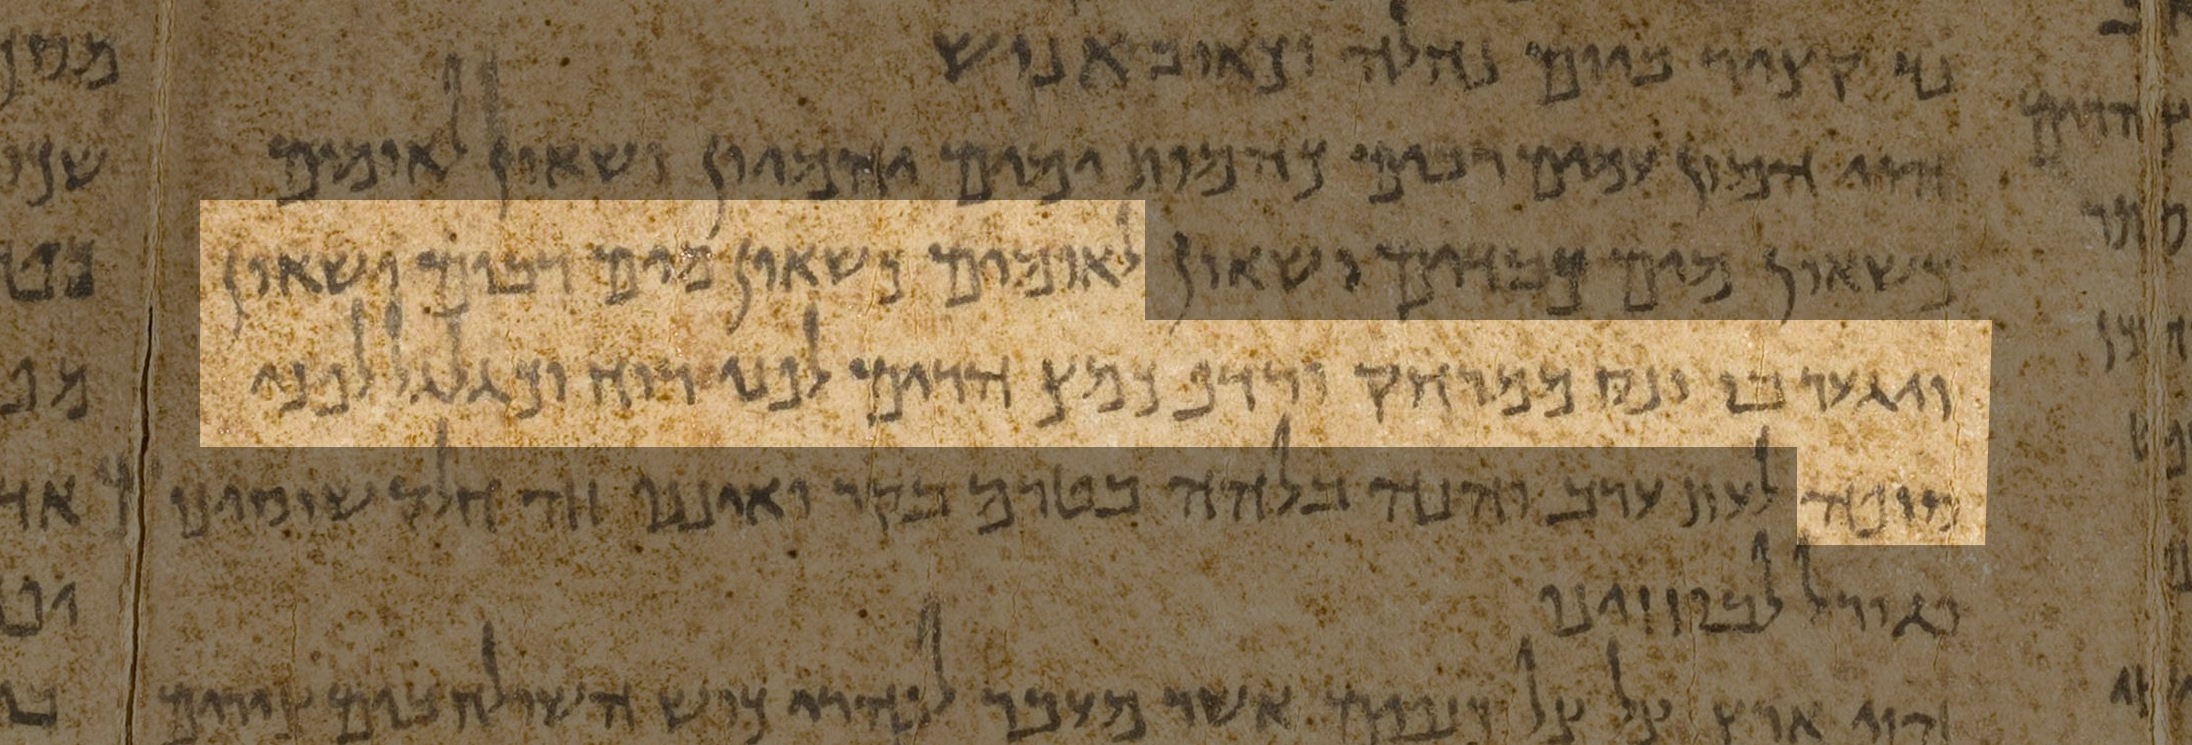 נד קציר ביום נחלה וכאוב אנוש
הוי המון עמים רבים כהמות ימים יהמיון ושאון לאומים
כשאון מים כבירים ישאון לאומים כשאון מים רבים ישאון
ויגער בו ונס ממרחק ורדף כמץ הרים לפני רוח וכגלגל לפני
סופה לעת ערב והנה בלהה בטרם בקר ואיננו זה חלק שוסינו
וגורל לבוזזינו
הוי ארץ צל צל כנפים אשר מעבר לנהרי כוש השולח בים צירים